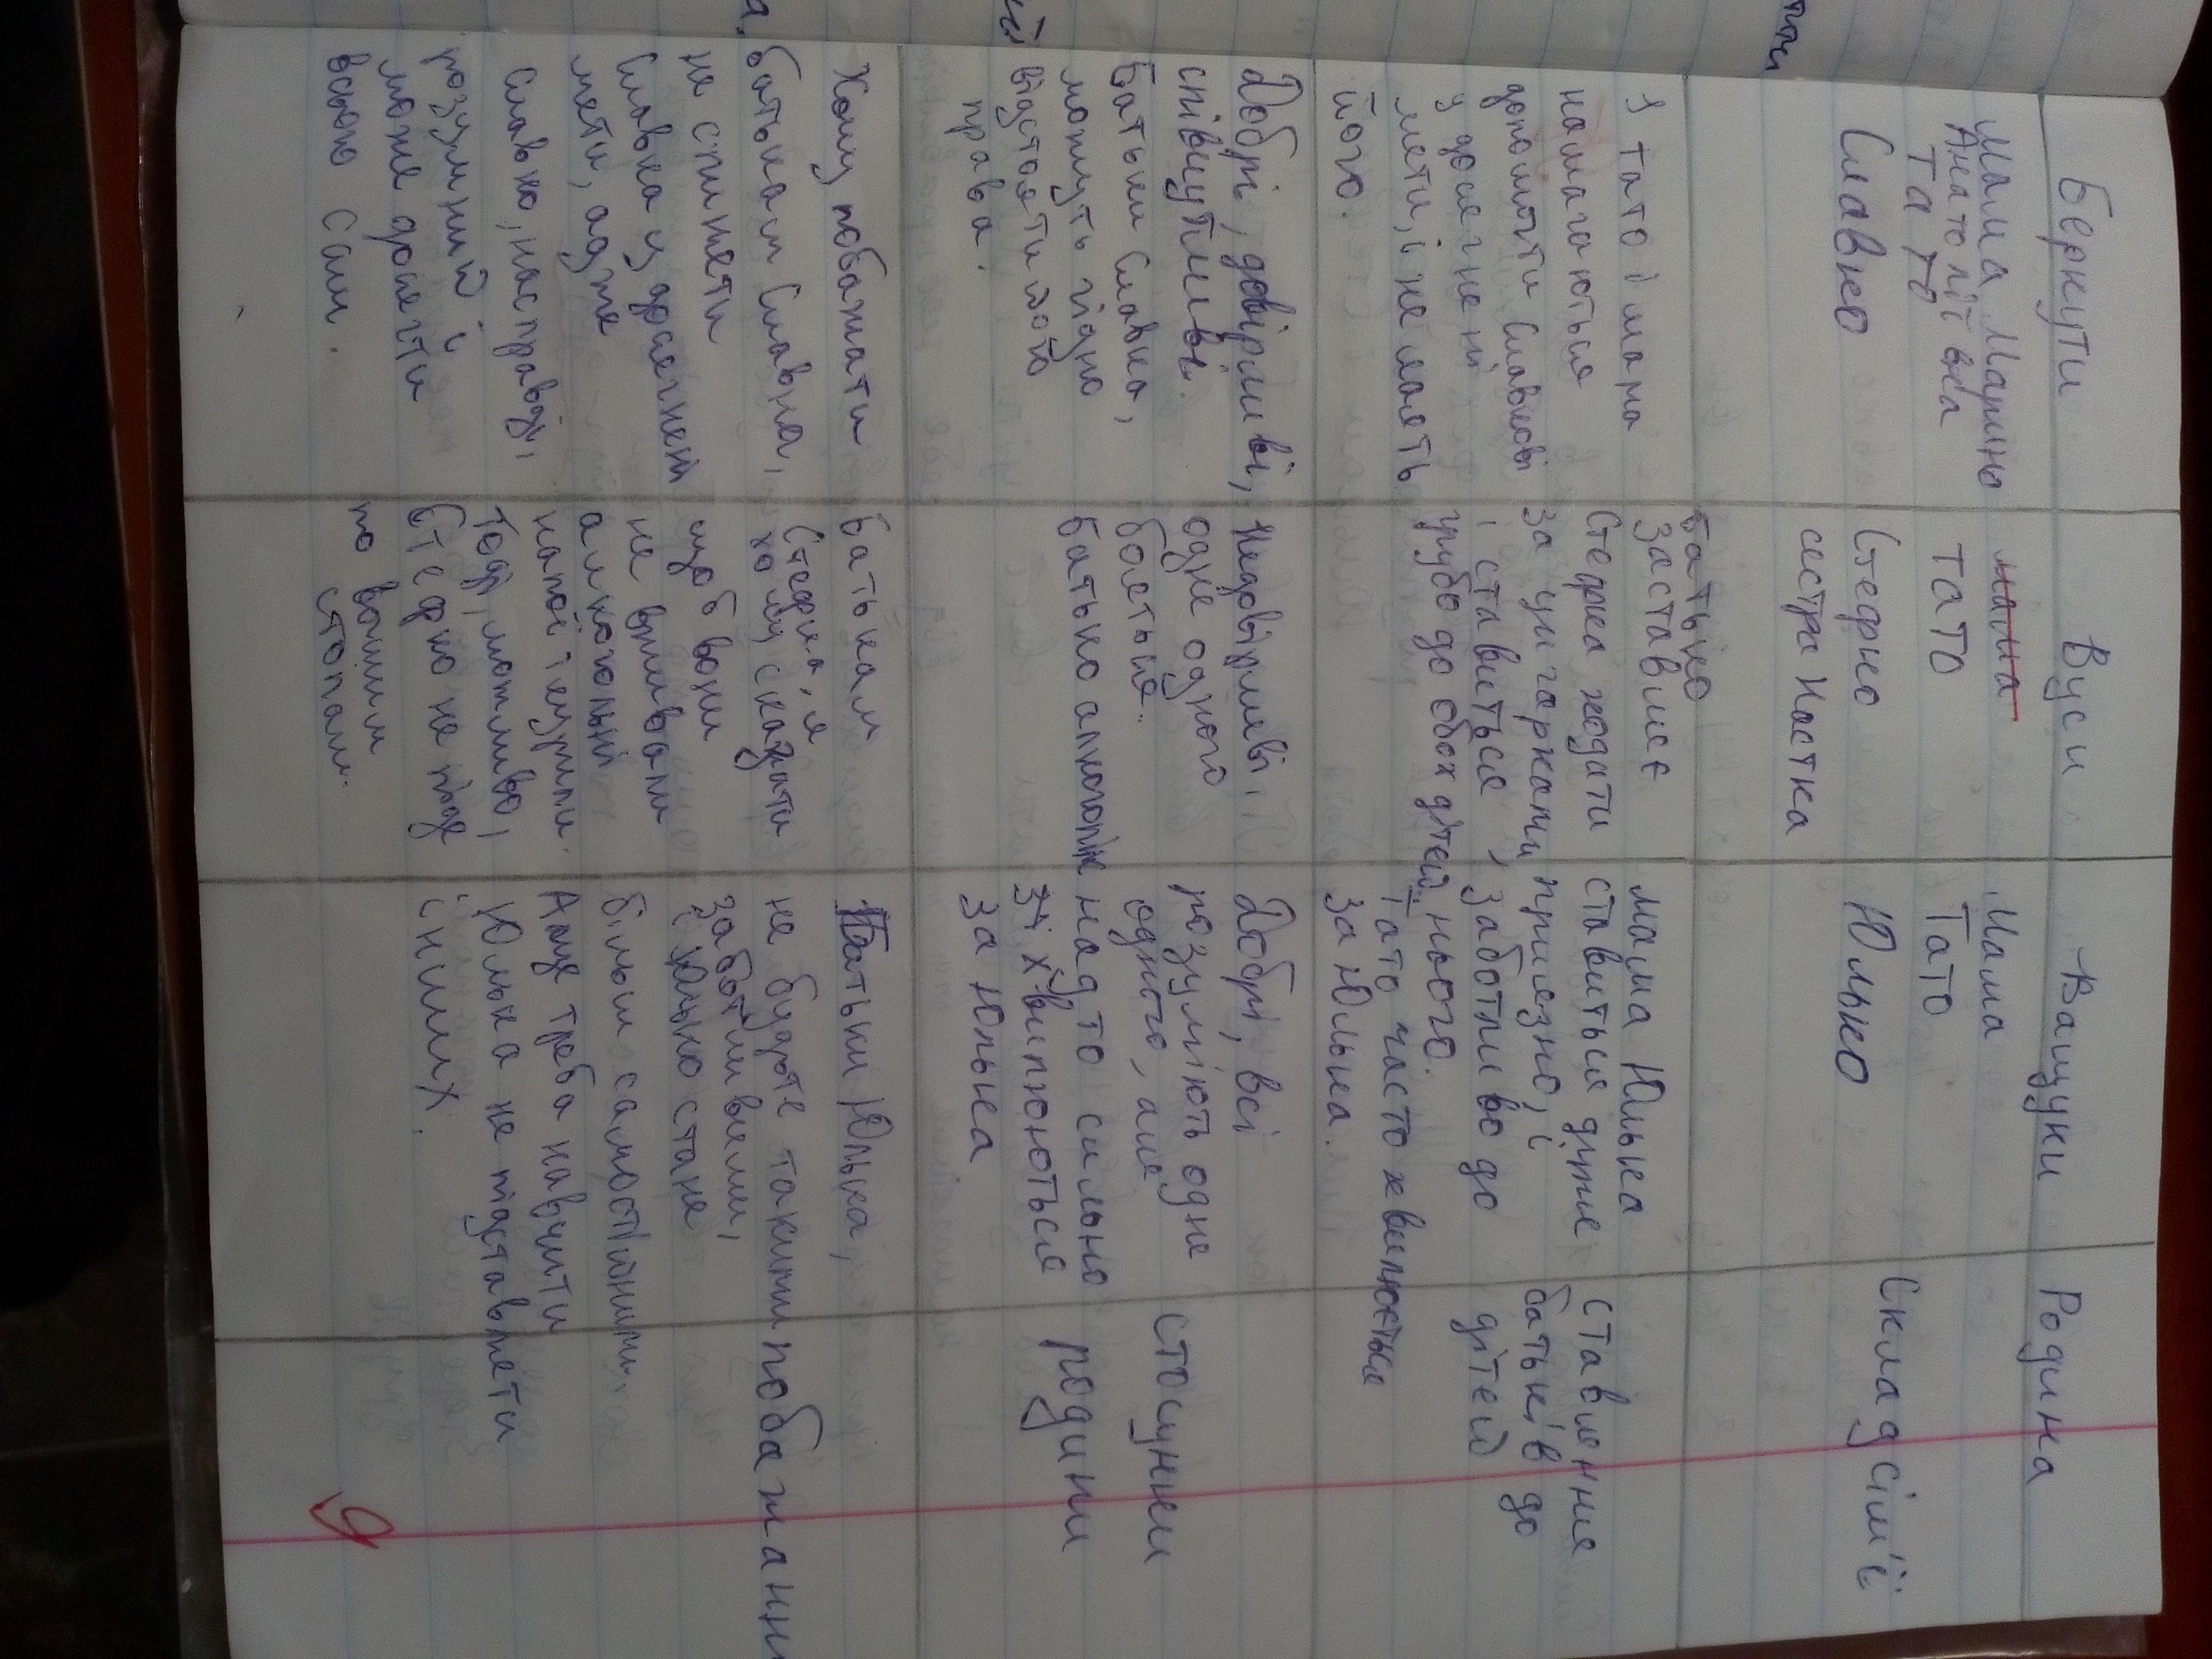 Беркути
Вуси
Ващуки
Родина
Мама Марина
Анатоліївна
Тато
Славко
мама
тато
Стефко
сестра Настка
Мама
Тато
Юлько
Склад сім'ї
І тато і мама
намагаються
допомогти Славкові
у досягнені
мети, і не лають
його.
батько
заставляє
Стефка ходати
за цигарками
і ставиться
грубо до обох дітей.
мама Юлька
ставиться дуже
приязно, і
заботливо до
нього.
Тато часто хвилюється
за Юлька.
ставлення
батьків до
дітей
Добрі, довірливі,
співчутливі.
Батьки Славка,
можуть гідно
відстояти його
права.
Недовірливі,
одне одного
бояться.
батько алкоголік
Добрі, всі
розуміють одне
одного, але
надто сильно
хвилюються
за Юлька
стосунки
родини
Хочу побажати
батькам Славка,
не спиняти
Славка у досягнені
мети, адже
Славко, насправді,
розумний і
може досягти
всього сам.
Батькам
Стефка, я
хочу сказати
щоб вони
не вживали
алкогольні
напої і курили.
Тоді, можливо,
Стефко не піде
по вашим
стопам.
Батьки Юлька,
не будьте такими
заботливими,
і Юлько стане
більш самостійним.
А ще треба навчити
Юлька не підставляти
інших.
побажання
9